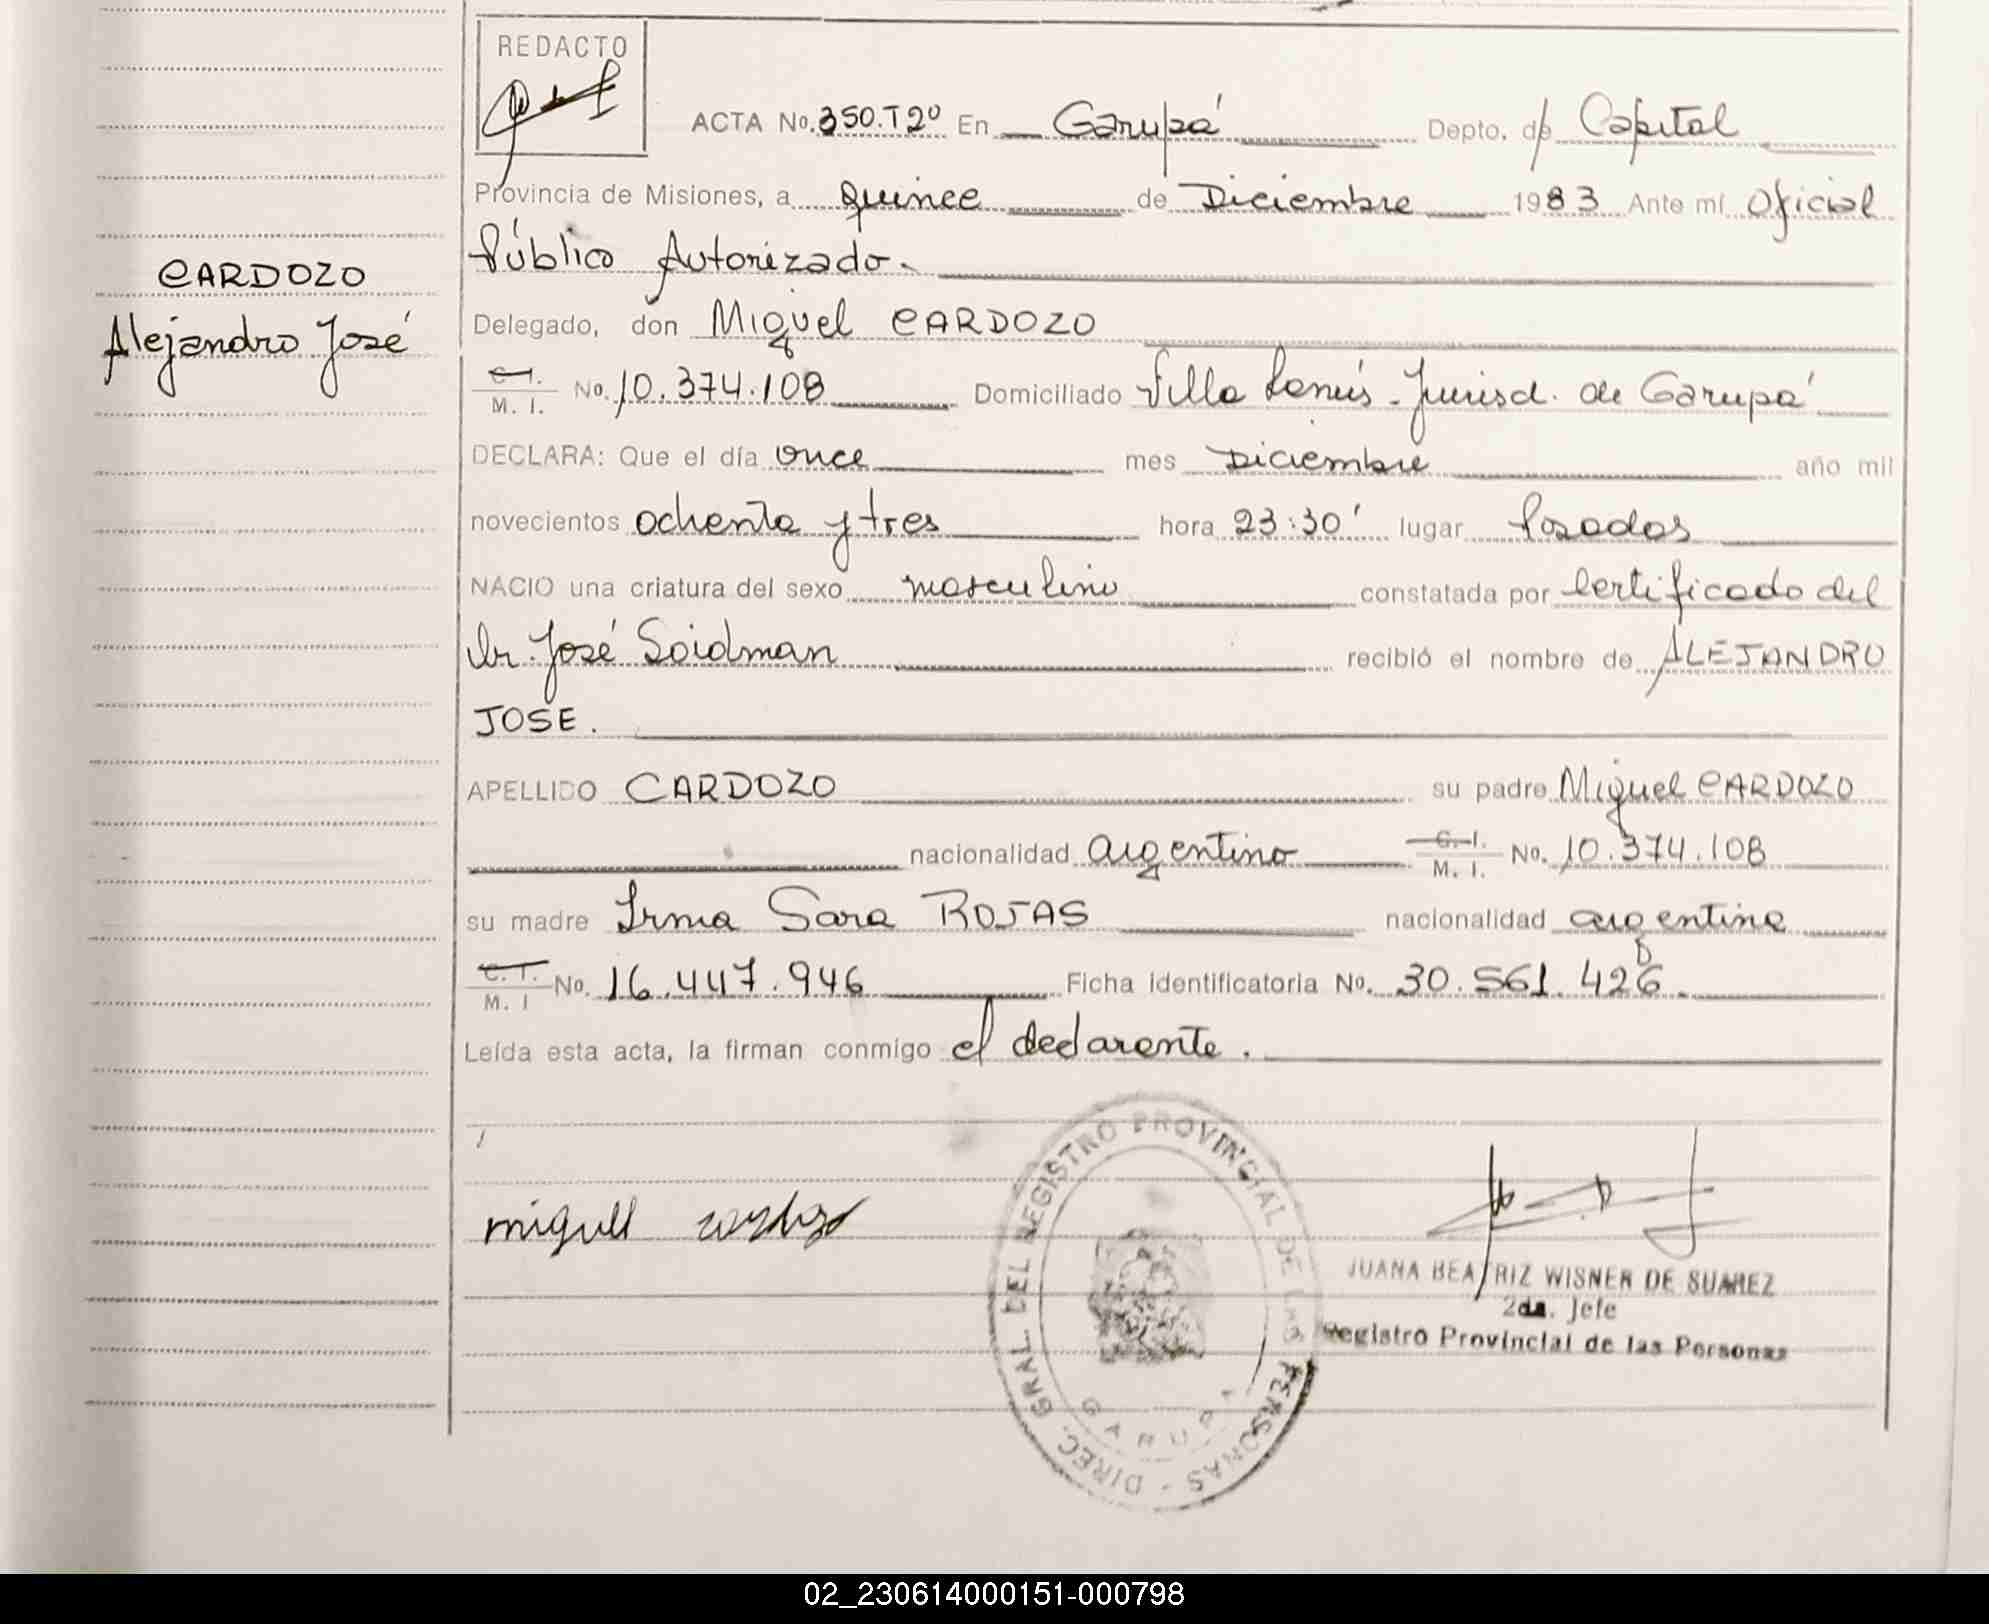 REDACTO
ACTA No. 350.T2º En Garupá Depto, de Capital
Provincia de Misiones, a quince de Diciembre 1983 Ante mí Oficial
Público Autorizado.
CARDOZO
Alejandro José
Delegado, don Miguel CARDOZO
C.I. M. I. No. 10.374.108 Domiciliado Villa Lanús - Jurisd. de Garupá
DECLARA: Que el día once mes Diciembre año mil
novecientos ochenta y tres hora 23:30' lugar Posadas
NACIO una criatura del sexo masculino constatada por Certificado del
Dr. José Soidman recibió el nombre de ALEJANDRO
JOSE.
APELLIDO CARDOZO su padre Miguel CARDOZO
nacionalidad argentino C.I. M. I. No. 10.374.108
su madre Irma Sara ROJAS nacionalidad argentina
C.I. M. I No. 16.447.946 Ficha identificatoria No. 30.561.426.
Leída esta acta, la firman conmigo el declarante.
miguel cardozo
DIREC. GRAL. DEL REGISTRO PROVINCIAL DE LAS PERSONAS -
GARUPA
JUANA BEATRIZ WISNER DE SUAREZ
2da. Jefe
Registro Provincial de las Personas
02_230614000151-000798